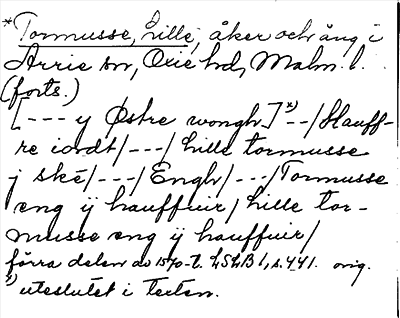 *Tormusse, lille, åker och äng i
Arrie sn, Oxie hd, Malm. l.
(forts.)
[--- y Østre wongh.] x) --/Hauff-
re iordt/---/ lille tormusse
j ské/---/Engh/---/Tormusse
eng ÿ hauffuir/ lille tor-
musse eng ÿ hauffuir/
förra delen av 1570-t. LSLB 1, s. 441. orig.
x) uteslutet i texten.